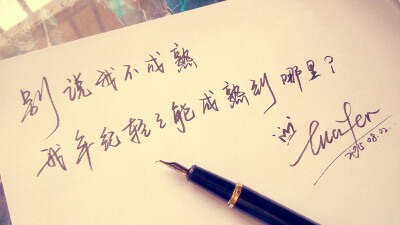 别说我不成熟
我年纪轻轻能成熟到哪里？
2015.08.22.